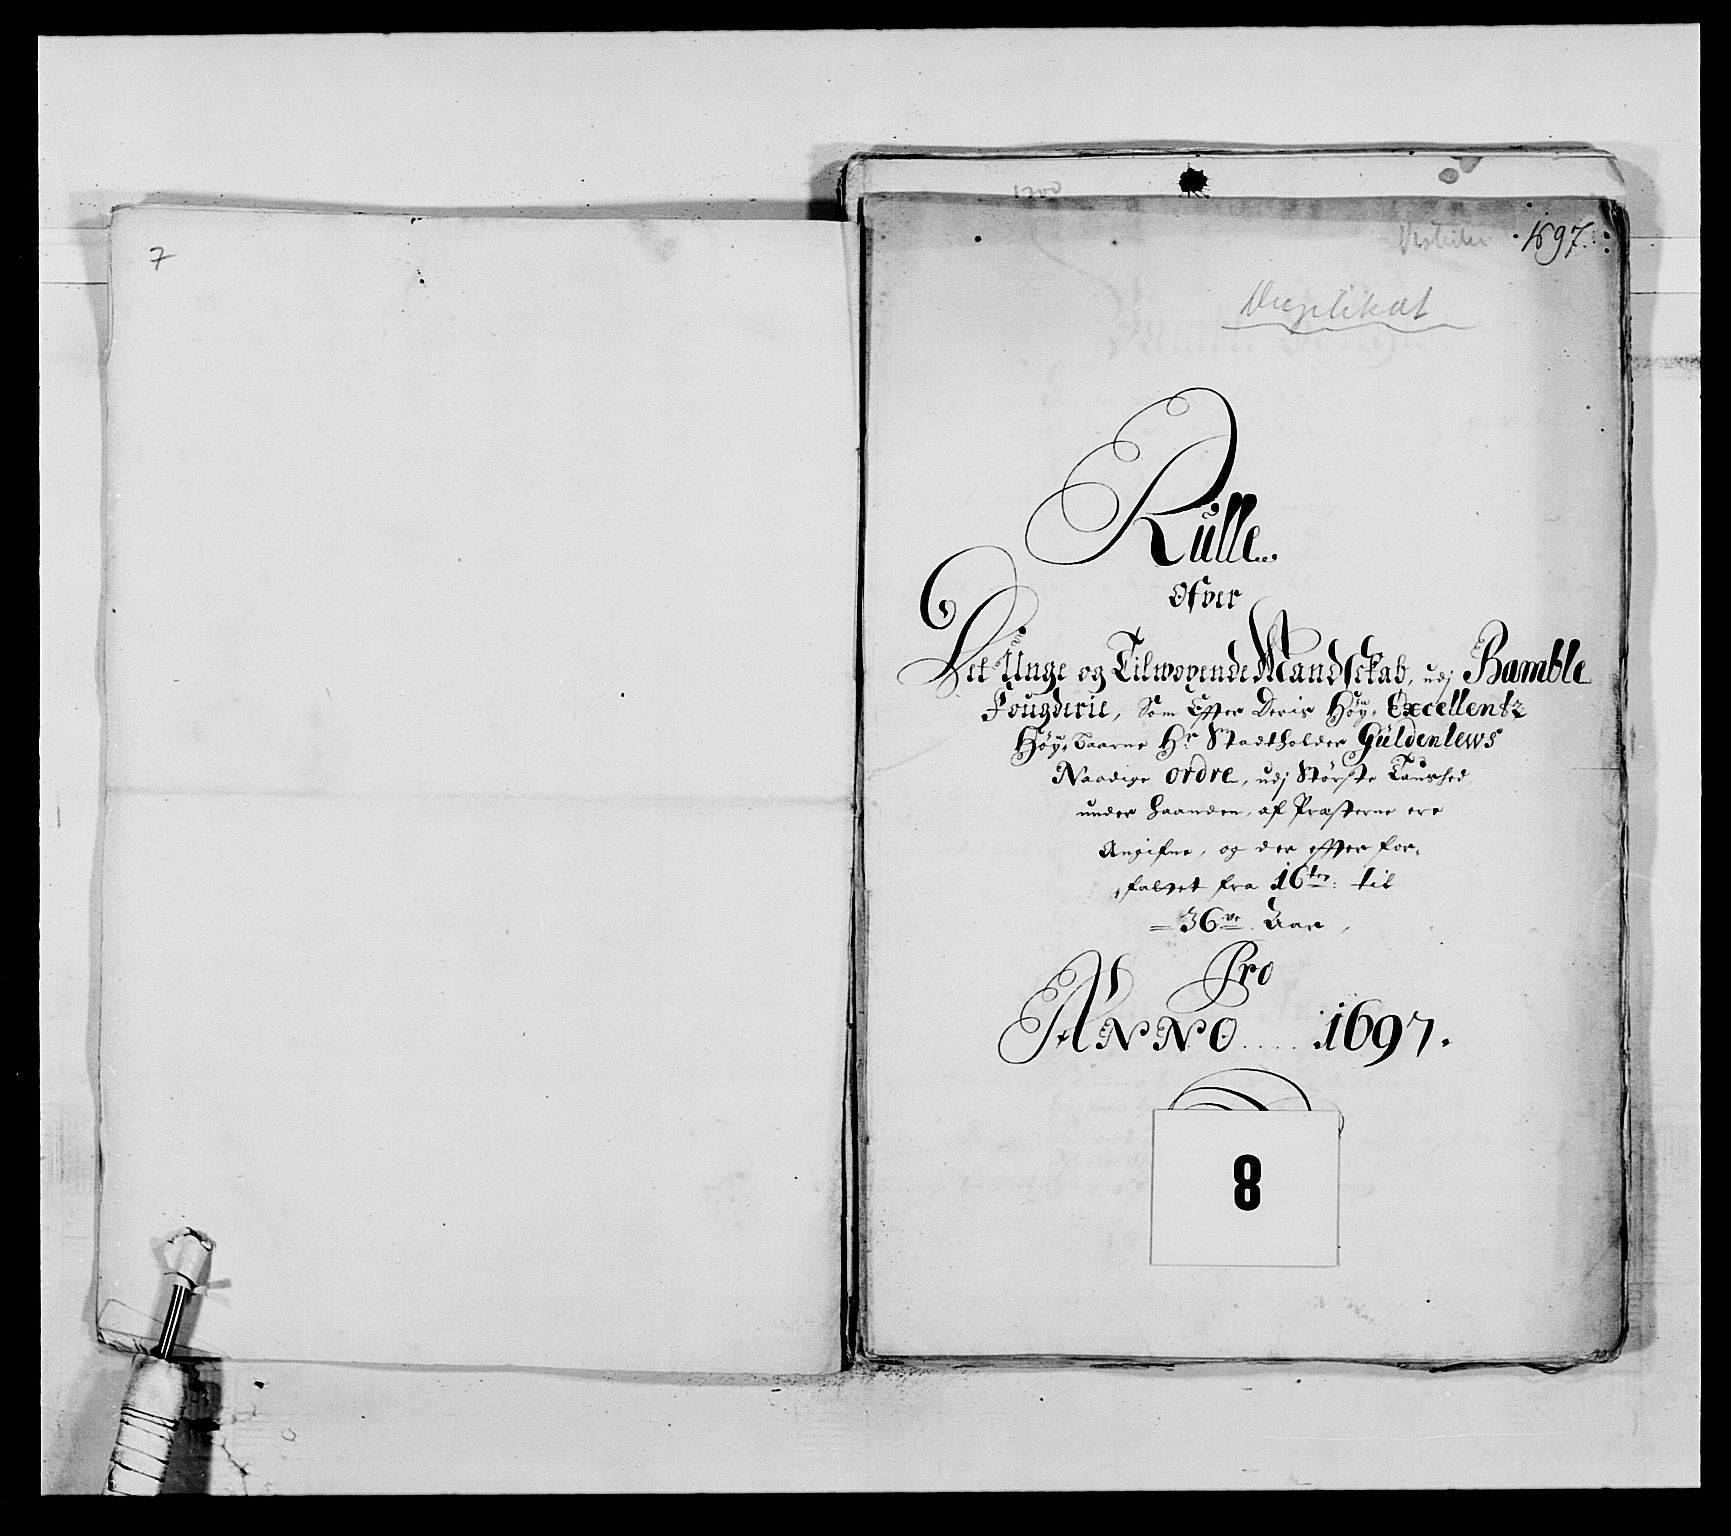 7
1700
1697.
Duplikat
Rulle..
Ofver
Det Unge og Tilvoxende Mandskab, udj Bamble
Fougderie, Som Effter Deris Höy, Excellentz
Höy, Baarne Hr Stadtholder Güldenlews
Naadige ordre, udj Störste Taushed
under Haanden, af Præsterne ere
Angifne, og der effter for,
,fattet fra 16ten: til
=36ve Aar,
Pro
ANNO.....1697.
8